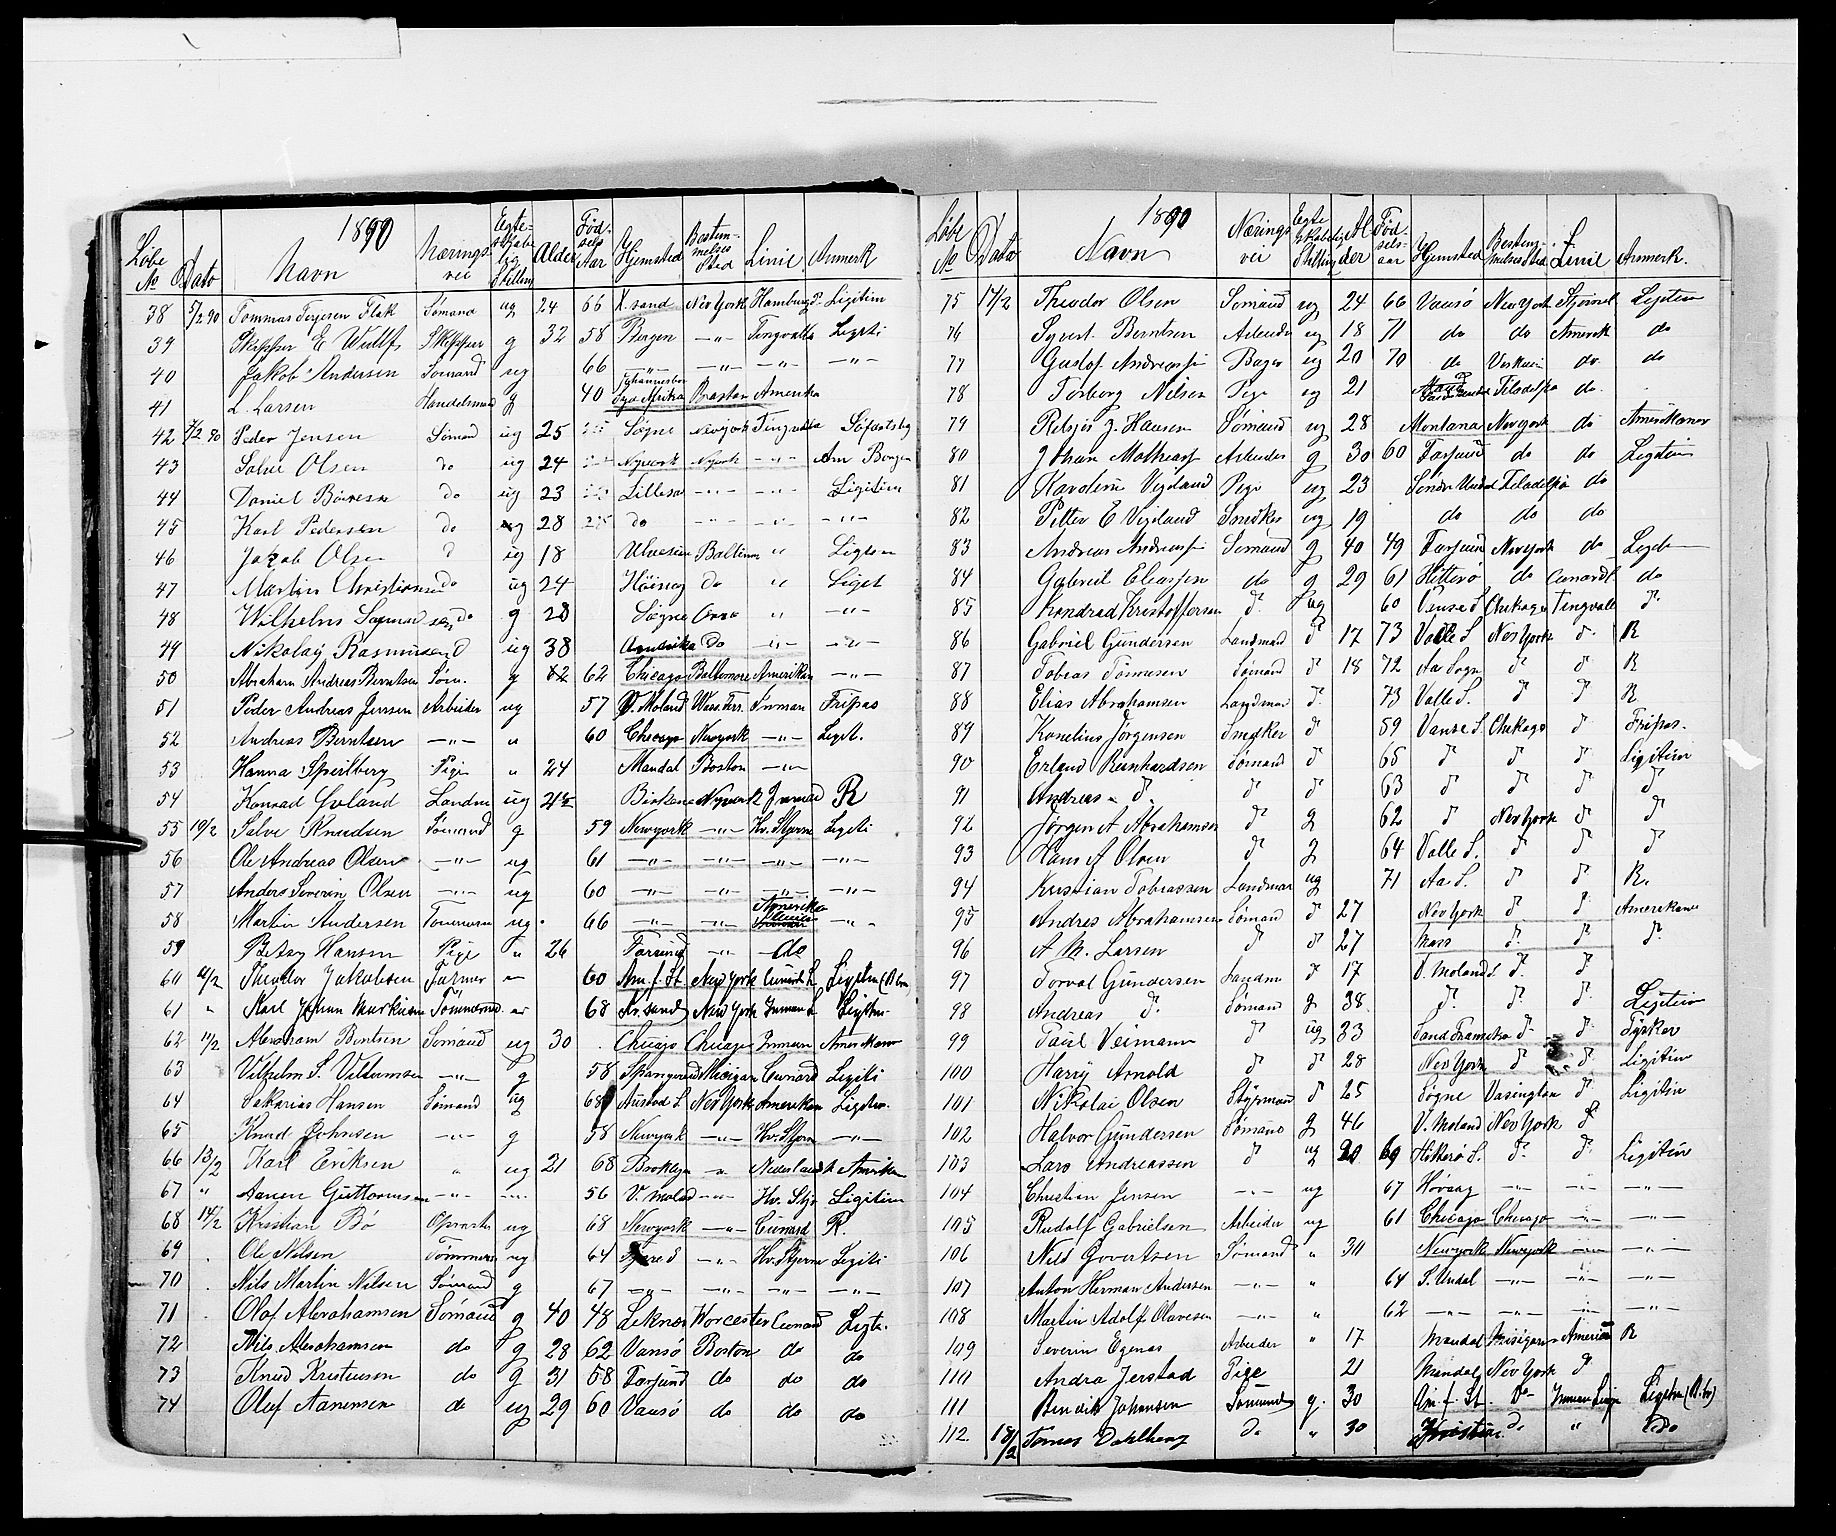 1890
Løbe No Dato Navn Nærings vei Egte- skabe lig Stelling Alder Fød- sels Aar Hjemsted Bestem- melses Sted Linie Anmerk
38 5/2 90 Tommas Terjesen Flak Sømand ug 24 66 X. sand New York Hamburg Ligitim
39 Skipper E Wulff Skipper g 32 58 Bergen -"- Tingvalla Ligiti
40 Jakob Andersen Sømand ug 66 -"- -"- -"- -"-
41 L. Larsen Handelsmand g 40 Johannesbor Syd Afrika Boston Amerika
42 7/2 90 Peder Jensen Sømand ug 25 Søgne New york Tingvalla Søfartsbg
43 Salve Olsen do ug 24 Nyyork Nyork -"- Am Borger
44 Daniel do ug 23 Lillesa -"- -"- Ligitim
45 Karl Pedersen do ug 28 do -"- -"- -"-
46 Jakob Olsen d ug 18 Baltimor " Ligtem
47 Martin Christiansen do ug 24 Høivag do " Liget
48 Wilhelm do g 28 Søgne " -"-
49 Nikolay Rasmussen d ug 38 Amerika do -"- -"-
50 Abraham Andreas Berntsen Søm. g 62 Chicago Baltemore Amerikan -"-
51 Peder Andreas Jensen Arbeider ug 57 V. Moland Inman Fripas
52 Andreas Berntsen -"- " 60 Chicago Newyork -"- Legit.
53 Hanna Speilberg Pige " 24 Mandal Boston -"-
54 Konrad Landm ug Birkene Nyyork R
55 10/2 Salve Knudsen Sømand g 59 Newyork -"- Hv. Stjerne Ligiti
56 Ole Andreas Olsen -"- ug 61 -"- -"- -"- -"-
57 Anders Severin Olsen -"- ug 60 -"- -"- -"- -"-
58 Martin Andersen Tømmerm ug 66 -"- -"- Amerika -"-
59 Betsy Hansen Pige " 26 Farsund -"- do
60 Theodor Jakobsen Farmer " 60 Am. f. St New York Cunard L Ligitim
61 " Karl Johan Markusen Tømmermd 68 Kr. sand New York Inman L Ligitim
62 11/2 Abraham Berntsen Sømand ug 30 Chicago Chicago Inman Amerikaner
63 Vilhelm S. Villumsen -"- g 58 Spangereid Michigan Cunard Legiti
64 Sakarias Hansen Sømand ug 68 Austad S. New York Amerikan Ligitim.
65 Knud Johnsen -"- g 58 Newyork -"- Hv. Stjern -"-
66 13/2 Karl Eriksen " ug 21 68 Broklyn " Nederlandsk Amerikan
67 " Aanen Guttormsen -"- -"- 56 V. Molad -"- Hv. Stje Ligitim
68 14/2 Kristian Bø ug 68 Newyork -"- Cunard R.
69 Ole Nilsen Tømmerm ug 64 -"- Hv. Stjern Legiti
70 Nils Martin Nilsen Sømand g 67 -"- -"- -"- -"-
71 Olaf Abrahamsen Sømand g 40 48 Leknes Worcester Cunard Legte.
72 Nils Abrahamsen do g 28 62 Vansø Boston do do
73 Knud Kristensen do g 31 58 Farsund do do do
74 Oluf Aanensen do ug 29 60 Vansø do do do
1890
Løbe No Dato Navn Nærings vei Egte Skabelig Stelling Al der Fød- sels- aar Hjemsted Bestem- melses Sted Linie Anmerk.
75 17/2 Theodor Olsen Sømand ug 24 66 Vansø New York Stjernel Legitim
76 Syvert Berntsen Arbeider ug 18 71 do do Amerik do
77 Gustaf Andreasen Bager ug 20 70 do do. do
78 Torborg Nilsen Pige ug 21 Filadelfia do.
79 J. Hansen Sømand ug 28 Montana New York do Amerikaner
80 Johan Mathias Arbeider g 30 60 Farsund do do Legitim
81 Karoline Vigeland Pige ug 23 Søndre Undal Filadelfia do
82 Petter E Vigeland Snedker ug 19 do do do
83 Andreas Andreasen Sømand g 40 49 Farsund New York do Legit
84 Gabriel Eliassen do g 29 61 Hitterø do Cunard L do
85 Kondrad Kristoffersen d. ug 60 Vanse S Chikago Tingvalla d.
86 Gabriel Gundersen Landmand d 17 73 Valle S New York d. R
87 Tobias Tønnesen Sømand d 18 72 Aa Sogn d d R
88 Elias Abrahamsen Landmand d. 73 Valle S. d d R
89 Kornelius Jørgensen Snedker d 59 Vanse S Chikago d Fripas.
90 Erland Reinhardsen Sømand d 65 d d d Ligitim
91 Andreas " d. d d 63 d d d d
92 Jørgen A Abrahamsen d g 62 d New York d d
93 Hans A Olsen d g 64 Valle S. d d d
94 Kristian Tobiassen Landmand ug 71 Aa S. d d R.
95 Andres Abrahamsen Sømand d 27 New York d d. Amerikaner
96 A M. Larsen d d 27 Mass d. d d.
97 Torval Gundersen Landm d 17 V. Moland S d. d
98 Andreas d. Sømand g 38 d. d. d. Legitim
99 Paul Veimann d ug 33 d d. Tysker
100 Harry Arnold d d 28 New York d d. Ligitim
101 Nikolai Olsen Styrmand d 25 Søgne Vasington d Ligitim
102 Halvor Gundersen Sømand g 46 V. Moland New York d
103 Lars Andreassen d ug 20 69 Hitterø S. d. d. Ligitim
104 Christian Jensen -"- ug 67 Høvaag -"- -"- -"-
105 Rudolf Gabrielsen Arbeider ug 61 Chicago Chicago -"- -"-
106 Nils Govertsen Sømand " 30 Newyork Newyork -"- -"-
107 Anton Herman Andersen -"- " 64 S. Undal -"- -"- -"-
108 Martin Adolf Olavesen -"- " 62 -"- -"- -"- -"-
109 Severin Egenas Arbeider " 17 Mandal Misigan Amerika R
110 Andra Jerstad Pige 21 Mandal New York d
111 Bendik Johansen Sømand g. 30 Am. f. St. Do Inman Linje Ligitim
112. 18/2 Tomas Dahlberg Do " 30 do " do